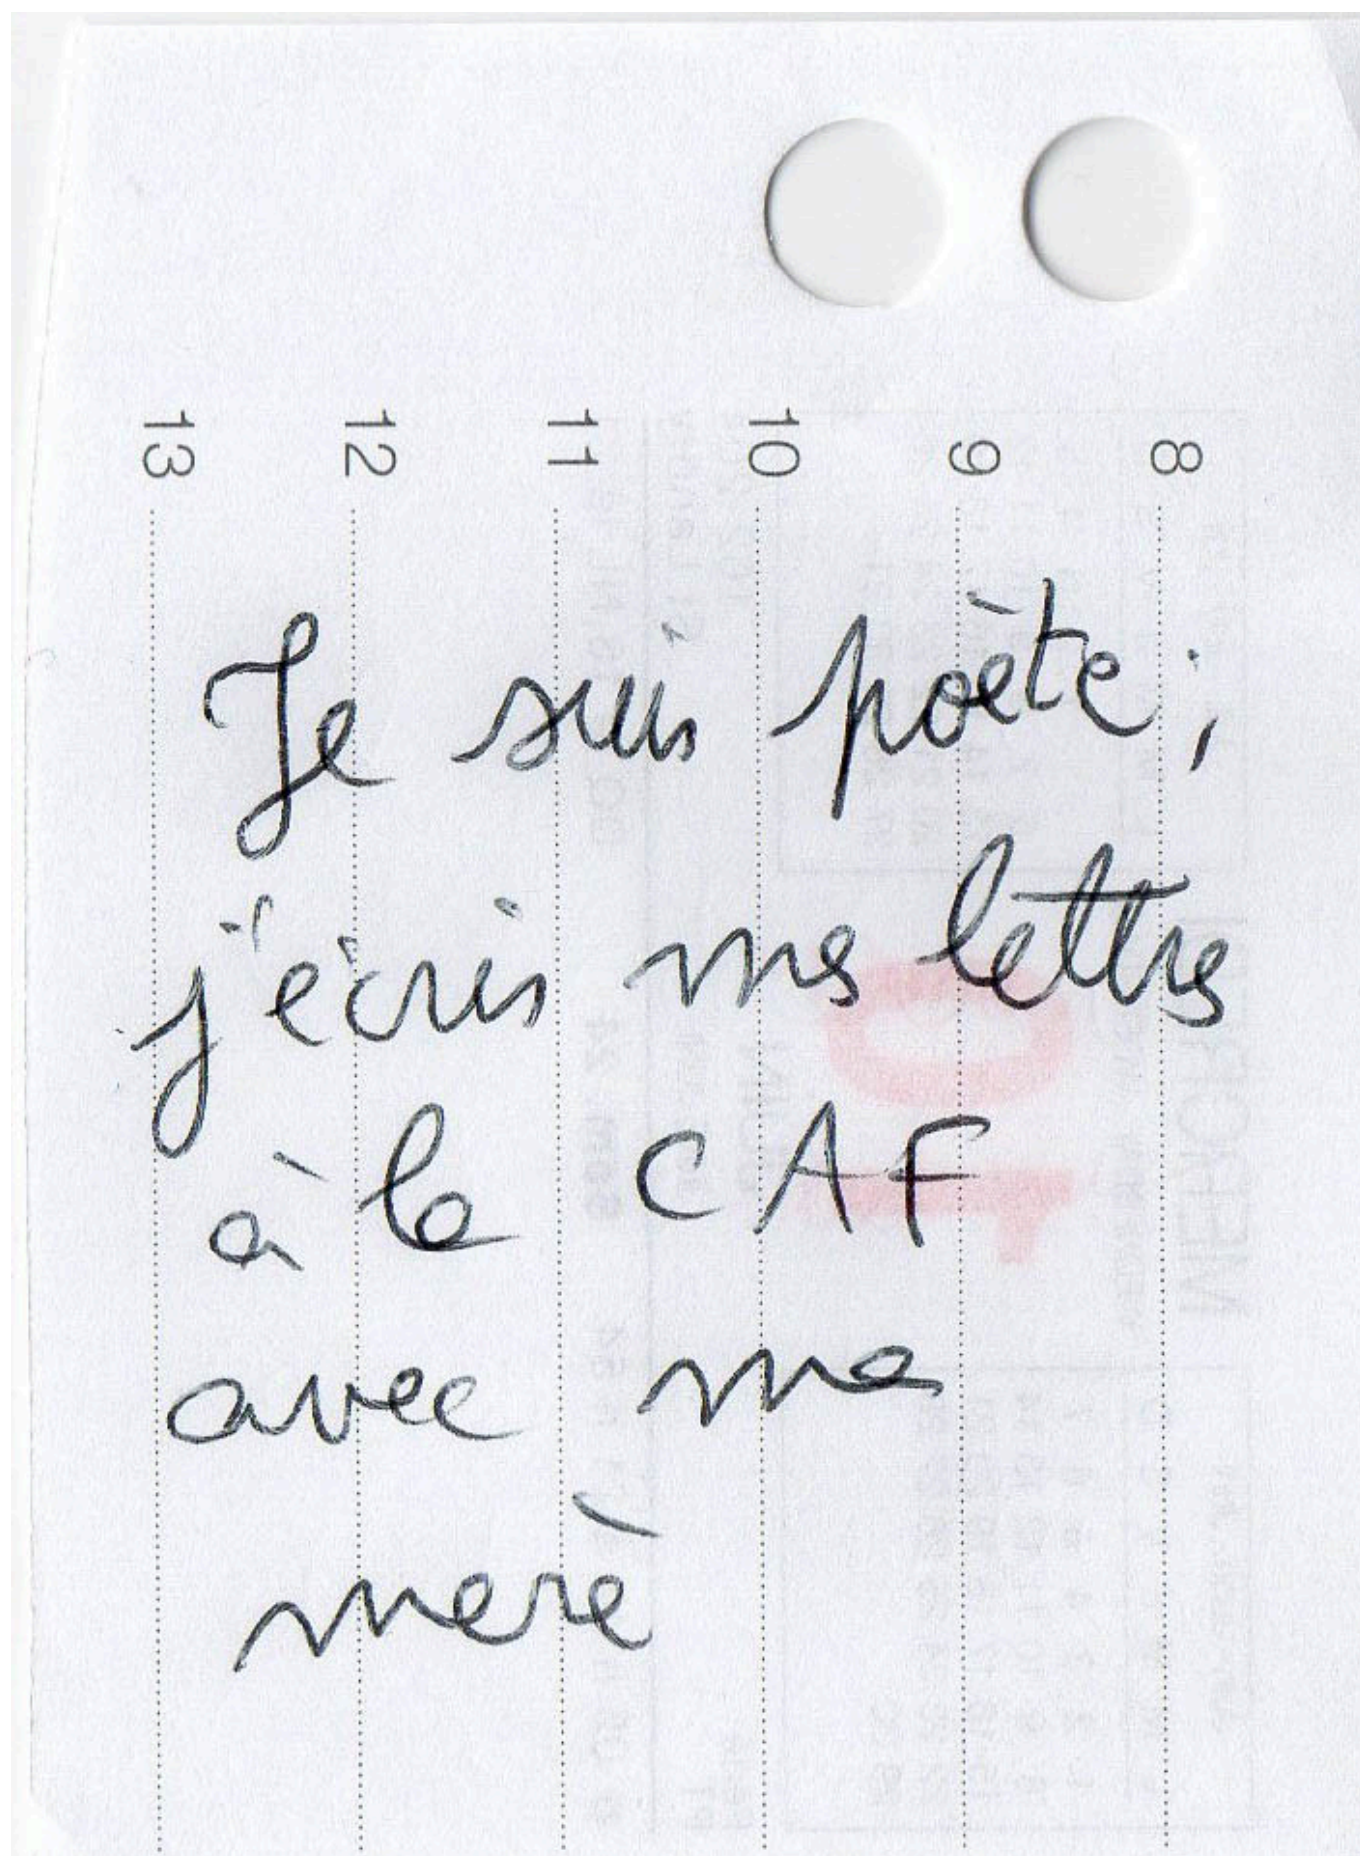 13 12 11 10 9 8
Je suis poète ;
j'écris mes lettres
à la CAF
avec ma
merè